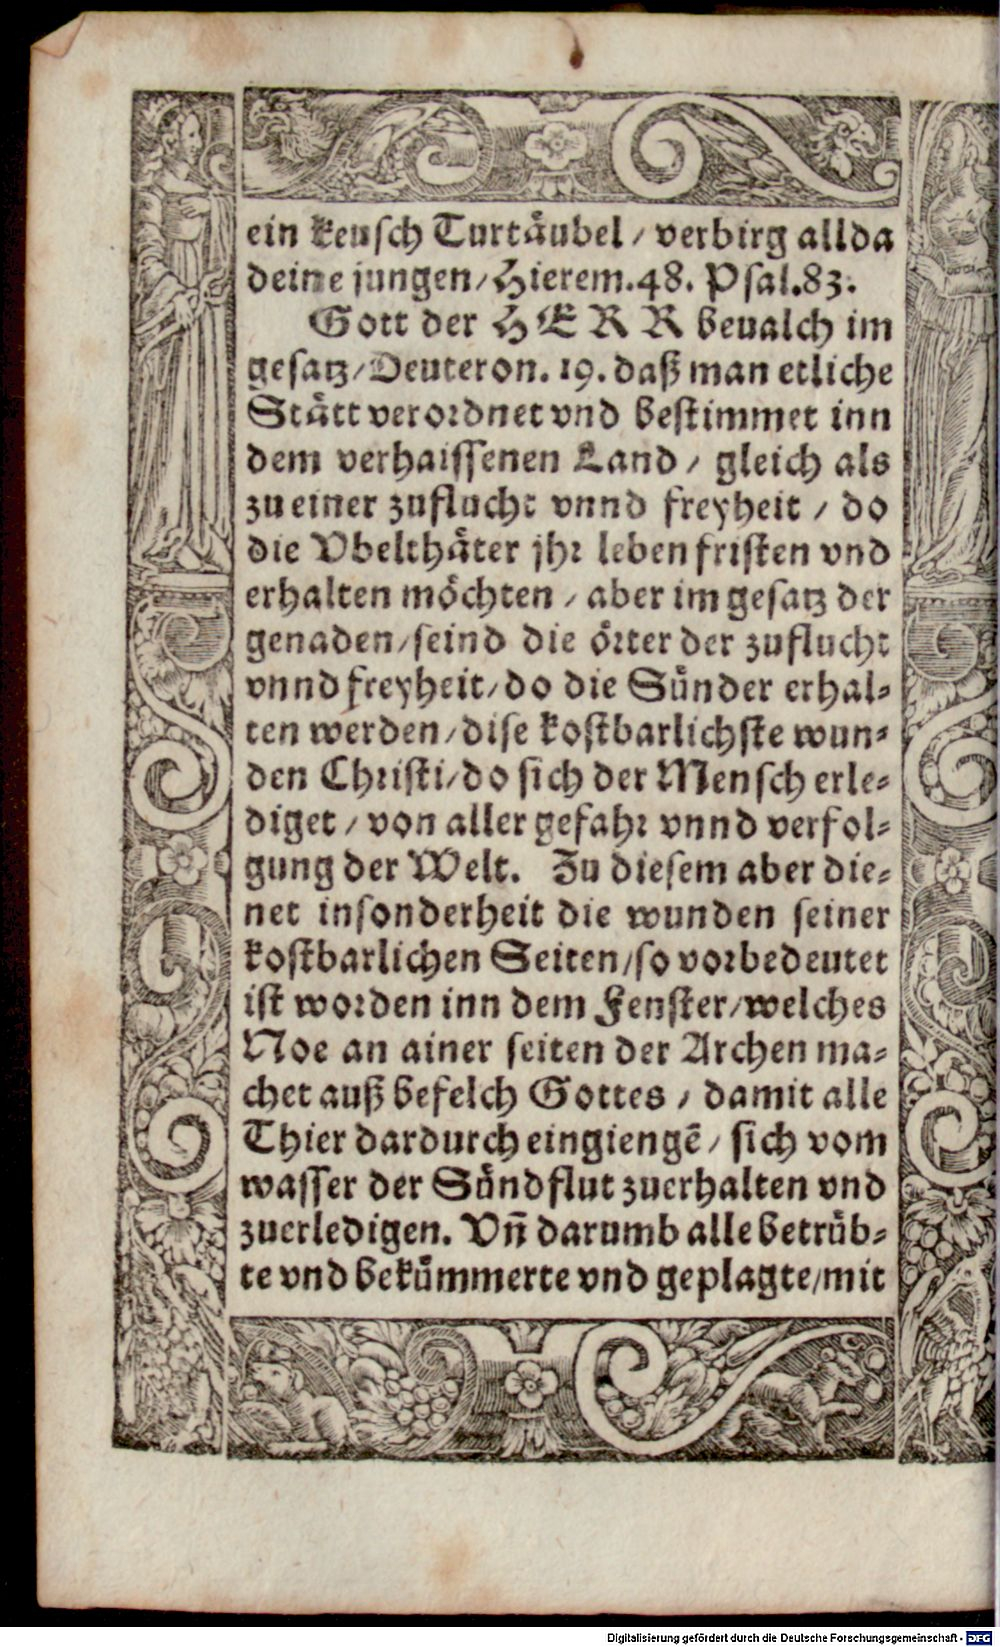 ein keusch Turtäubel / verbirg allda
deine jungen / Hierem. 48. Psal. 83.
Gott der HERR beualch im
gesatz / Deuteron. 19. daß man etliche
Stätt verordnet vnd bestimmet inn
dem verhaissenen Land / gleich als
zu einer zuflucht vnnd freyheit / do
die Vbelthäter jhr leben fristen vnd
erhalten möchten / aber im gesatz der
genaden / seind die örter der zuflucht
vnnd freyheit / do die Sünder erhal-
ten werden / dise kostbarlichste wun-
den Christi / do sich der Mensch erle-
diget / von aller gefahr vnnd verfol-
gung der Welt. Zu diesem aber die-
net insonderheit die wunden seiner
kostbarlichen Seiten / so vorbedeutet
ist worden inn dem Fenster / welches
Noe an ainer seiten der Archen ma-
chet auß befelch Gottes / damit alle
Thier dardurch eingiengē / sich vom
wasser der Sündflut zuerhalten vnd
zuerledigen. Vn̄ darumb alle betrüb-
te vnd bekümmerte vnd geplagte / mit
Digitalisierung gefördert durch die Deutsche Forschungsgemeinschaft - DFG